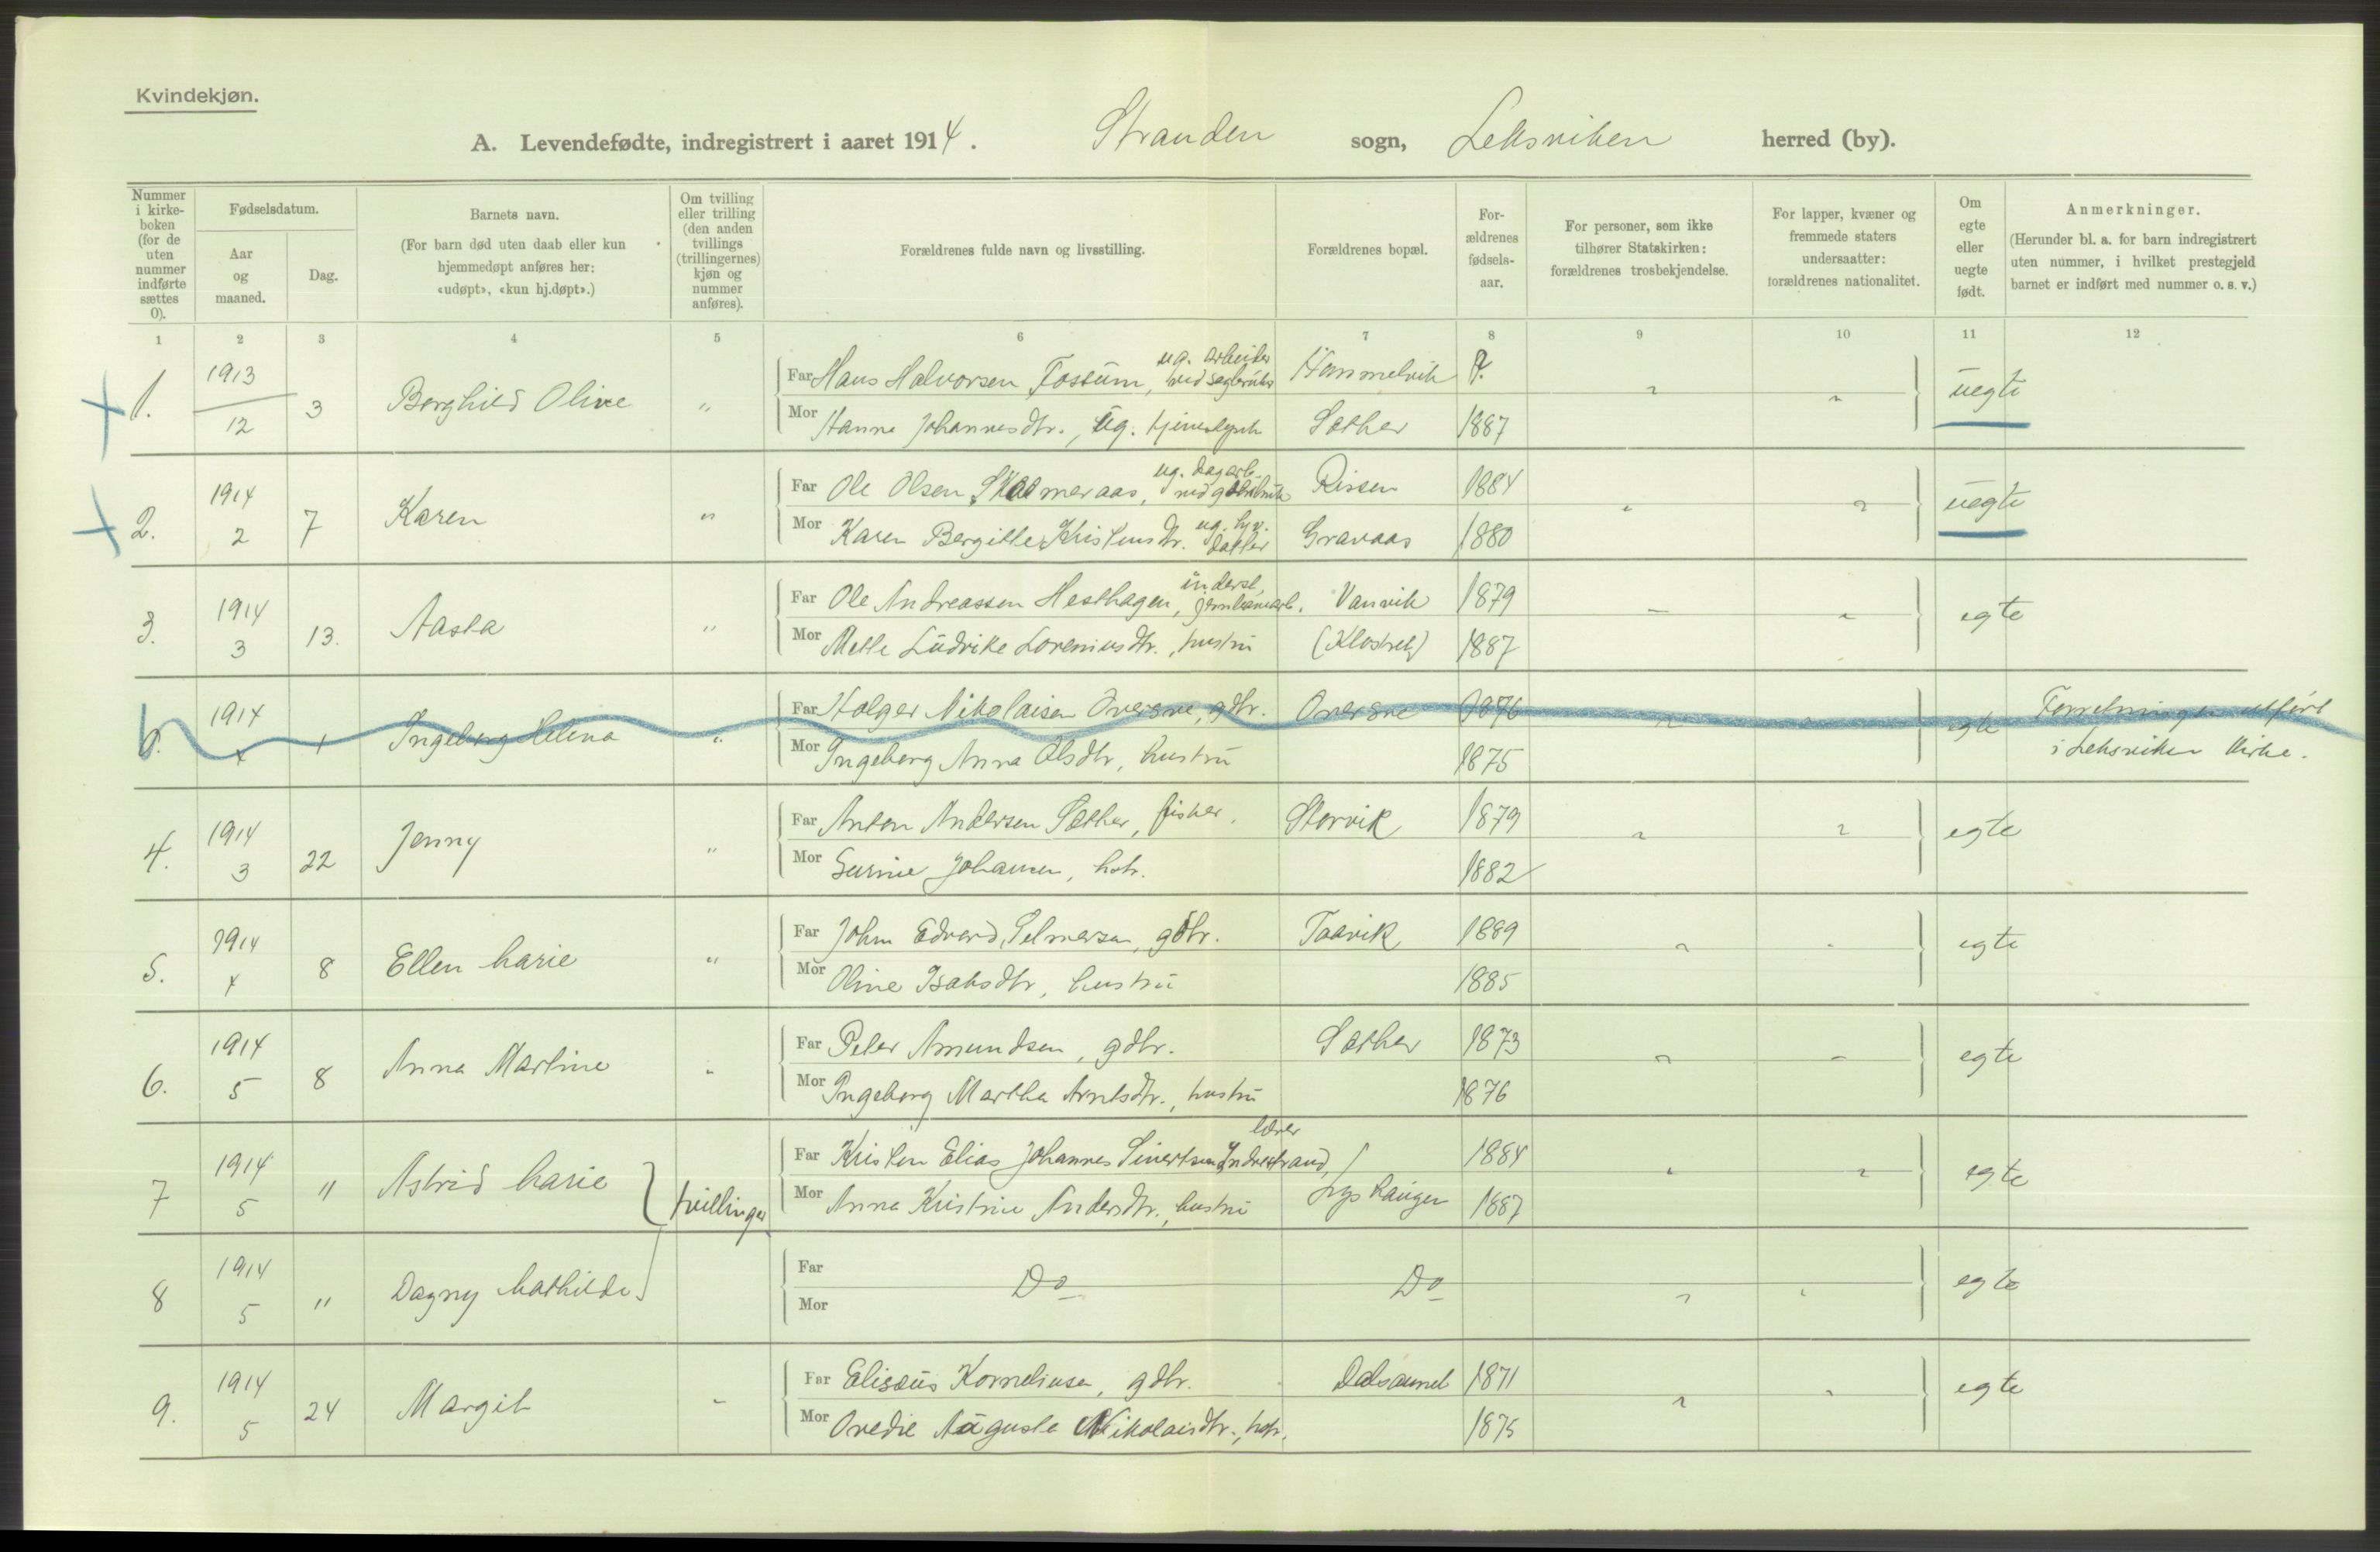 Kvindekjøn.
A. Levendefødte, indregistrert i aaret 1914. Stranden sogn, Leksviken herred (by).
Nummer i kirkeboken (for de uten nummer indførte sættes 0).
Fødselsdatum.
Aar og maaned.
Dag.
Barnets navn.
(For barn død uten daab eller kun hjemmedøpt anføres her: «udøpt», «kun hj.døpt».)
Om tvilling eller trilling (den anden tvillings (trillingernes) kjøn og nummer anføres).
Forældrenes fulde navn og livsstilling.
Forældrenes bopæl.
For-ældrenes fødsels-aar.
For personer, som ikke tilhører Statskirken: forældrenes trosbekjendelse.
For lapper, kvæner og fremmede staters undersaatter: forældrenes nationalitet.
Om egte eller uegte født.
Anmerkninger.
(Herunder bl. a. for barn indregistrert uten nummer, i hvilket prestegjeld barnet er indført med nummer o. s. v.)
1 2 3 4 5 6 7 8 9 10 11 12
1. 1913 12 3 Borghild Olive " Far Hans Halvorsen Fossum, ug. arbeider ved sagbruks Hammelvik ?. uegte
Mor Hanna Johannesdtr., ug. Sæther 1887
2. 1914 2 7 Karen " Far Ole Olsen ug. dagarb. Rissen 1884 uegte
Mor Karen Bergitte Kristensdtr. ug. datter Gravaas 1880
3. 1914 3 13. Aasta " Far Ole Andreassen Hesthagen, inderst, jernbanearb. Vanvik 1879 egte
Mor Mette Ludvike Loreniusdtr., hustru (Klostret) 1887
1914 4 1 Ingeborg Helena " Far Holger Nikolaisen Oversve, gdbr. Oversve 1876 egte Forretningen utført
Mor Ingeborg Anna Olsdtr, hustru 1875 i Leksviken kirke.
4. 1914 3 22 Jenny " Far Anton Andersen Sæther, fisker. Storvik 1879 egte
Mor Gurine Johansen, hstr. 1882
5. 1914 4 8 Ellen Marie " Far John Edvard Selmersen, gdbr. Taavik 1889 egte
Mor Oline Isaksdtr, hustru 1885
6. 1914 5 8 Anna Martine " Far Peter Amundsen, gdbr. Sæther 1873 egte
Mor Ingeborg Martha Arntsdtr., hustru 1876
7 1914 5 " Astrid Marie tvillinger Far Kristen Elias Johannes Sivertsen Indrestrand, lærer 1884 egte
Mor Anna Kristine Andersdtr., hustru 1887
8 1914 5 " Dagny Mathilde Far Do Do egte
Mor
9. 1914 5 24 Margit " Far Elisæus Korneliusen, gdbr. Dalsaunet 1871 egte
Mor Ovedie Augusta Nikolaisdtr., hstr. 1875